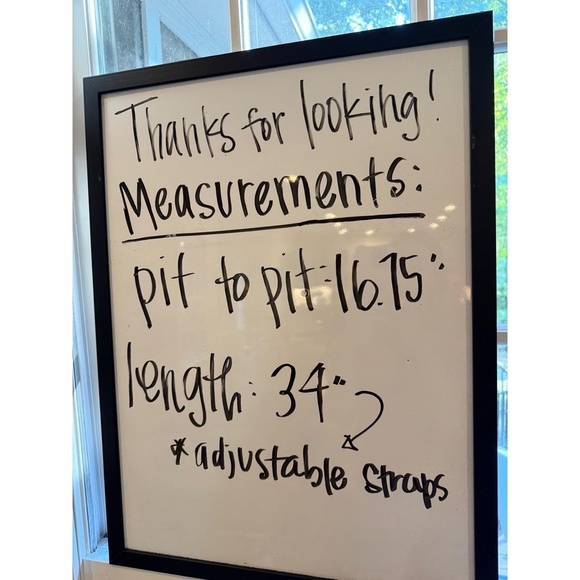 Thanks for looking!
Measurements:
pit to pit: 16.75"
length: 34"
*adjustable straps